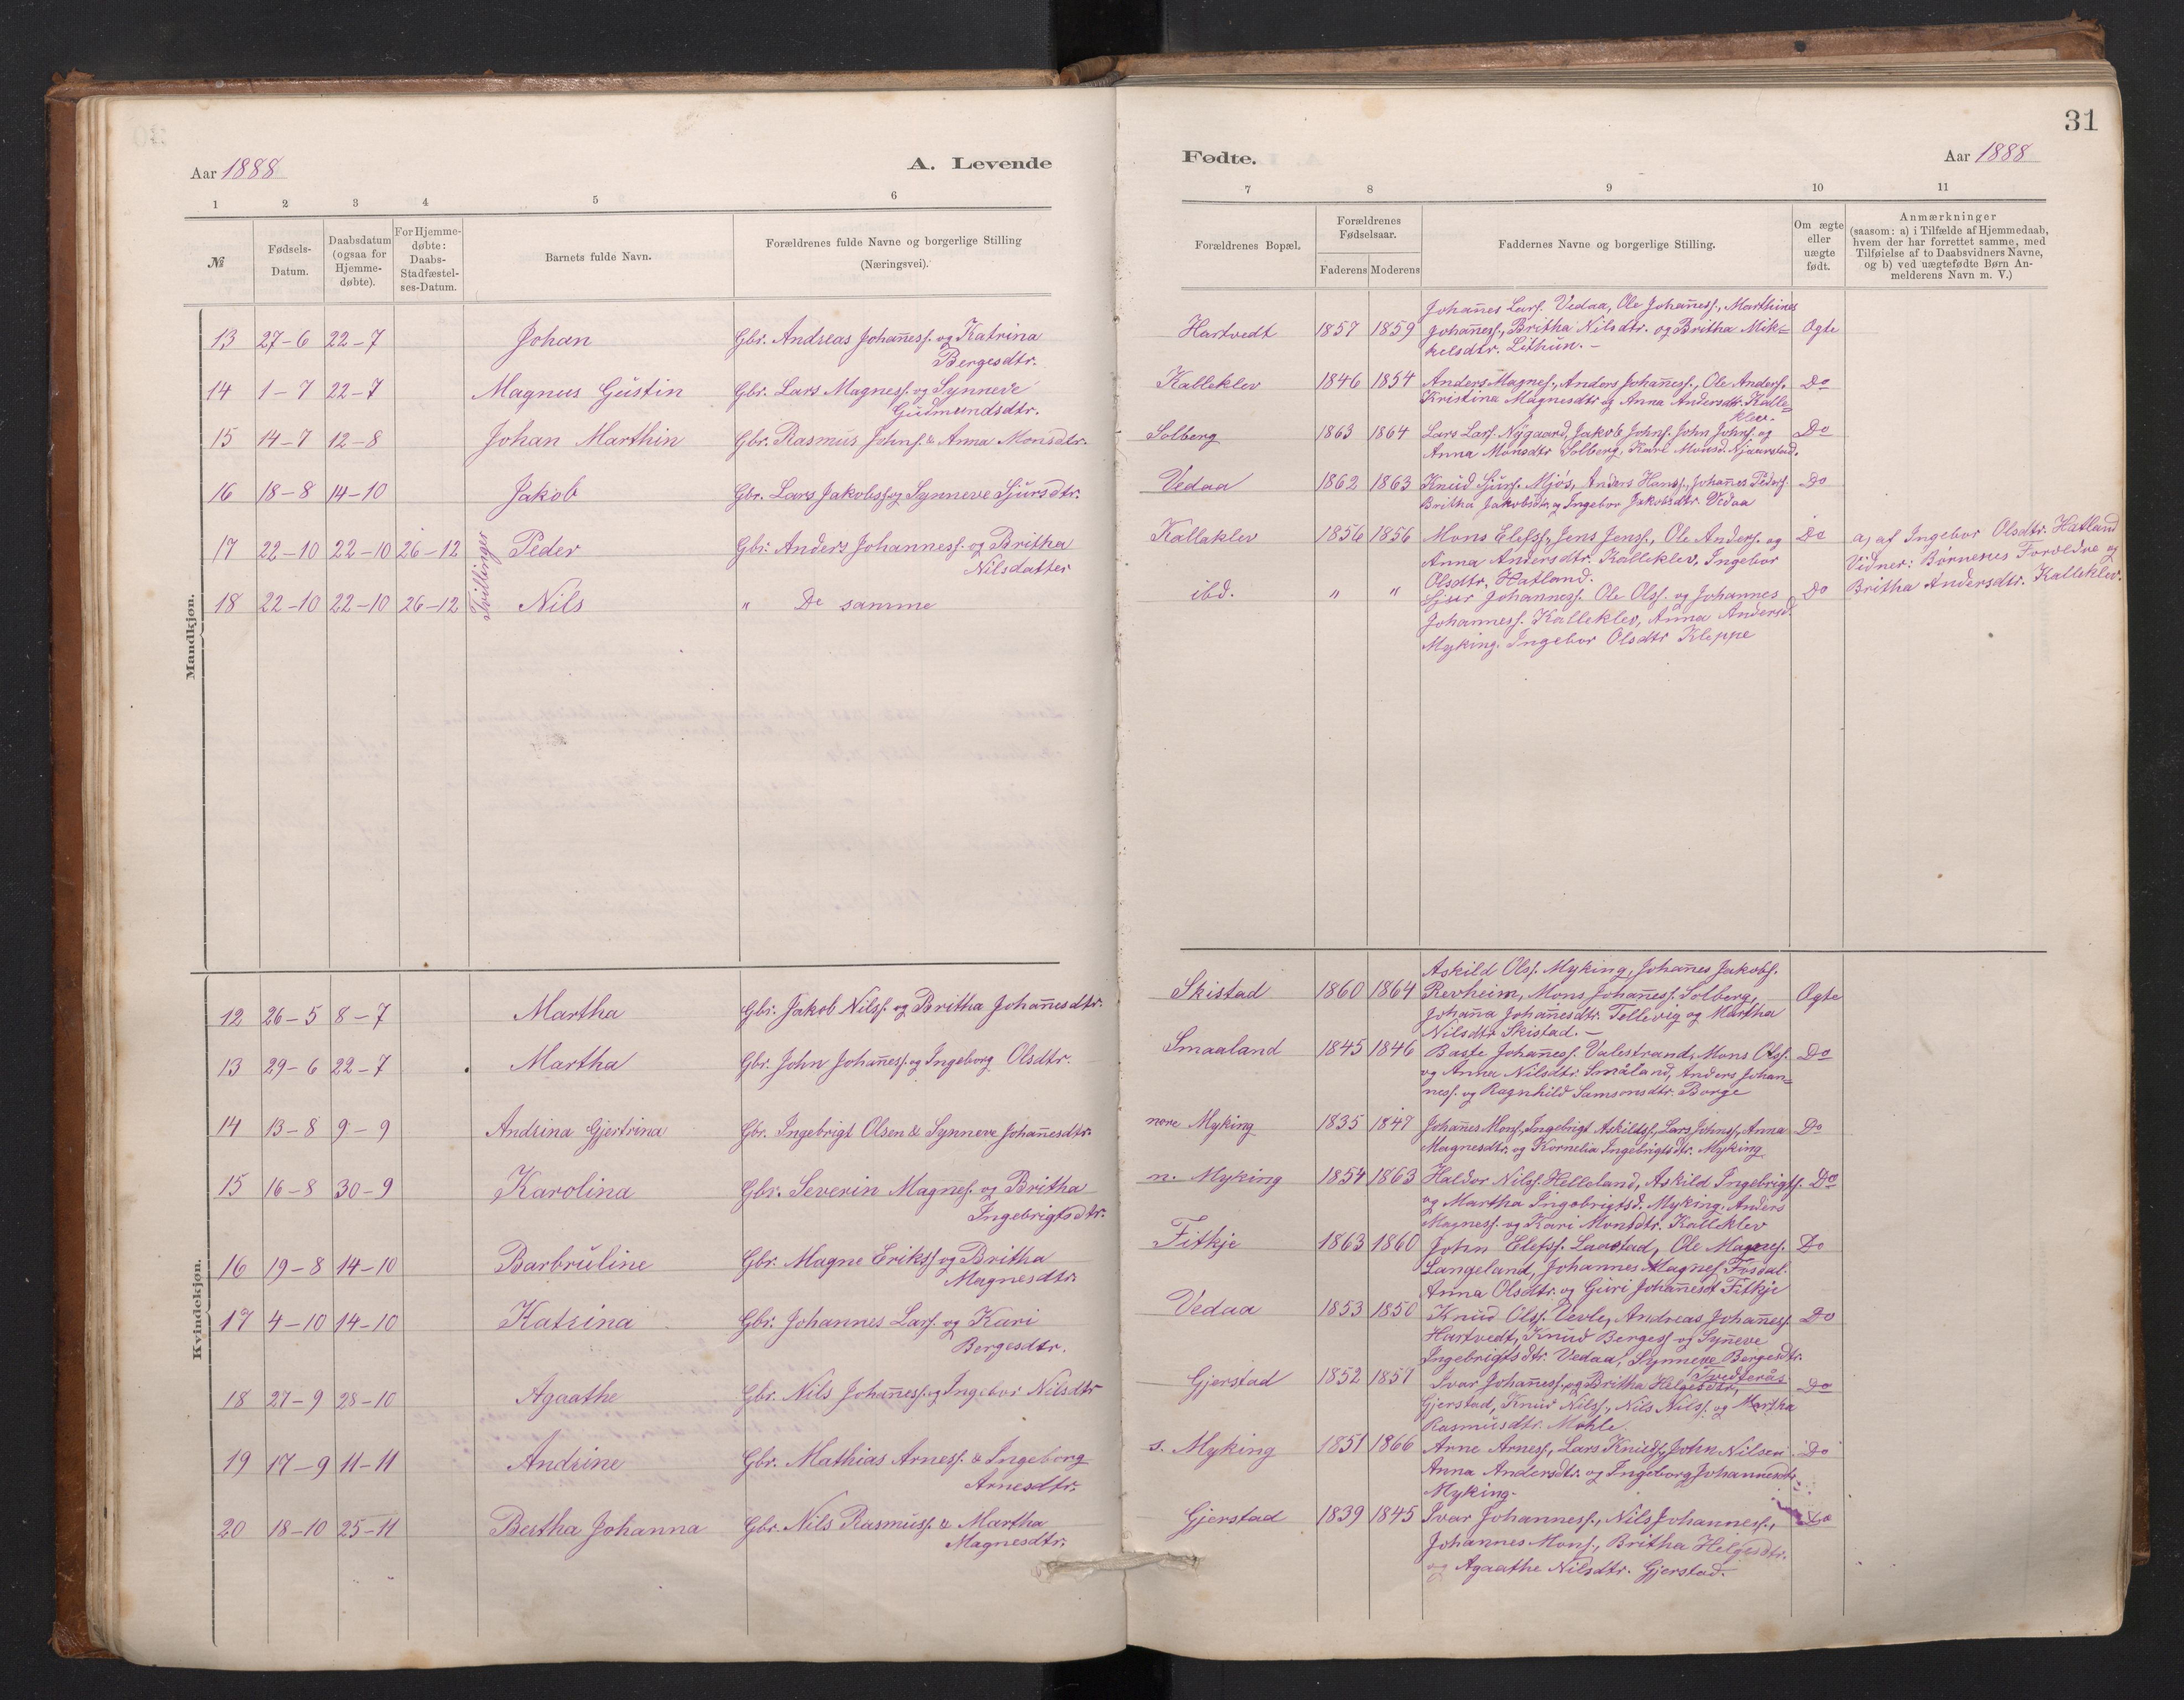 31
Aar 1888
A. Levende
Fødte.
Aar 1888
1 2 3 4 5 6 7 8 9 10 11
№
Fødsels-
Datum.
Daabsdatum
(ogsaa for
Hjemme-
døbte).
For Hjemme-
døbte:
Daabs-
Stadfæstel-
ses-Datum.
Barnets fulde Navn.
Forældrenes fulde Navne og borgerlige Stilling
(Næringsvei).
Forældrenes Bopæl.
Forældrenes
Fødselsaar.
Faderens Moderens
Faddernes Navne og borgerlige Stilling.
Om ægte
eller
uægte
født.
Anmærkninger
(saasom: a) i Tilfælde af Hjemmedaab,
hvem der har forrettet samme, med
Tilføielse af to Daabsvidners Navne,
og b) ved uægtefødte Børn An-
melderens Navn m. V.)
Mandkjøn.
13 27-6 22-7 Johan Gbr. Andreas Johaness. og Katrina
Bergesdtr.
Hartvedt 1857 1859
Johanes Lars. Vedaa, Ole Johaness., Marthines
Johaness., Britha Nilsdtr. og Britha Mik-
kelsdtr. Lithun. -
Ogte
14 1-7 22-7 Magnus Gustin Gbr. Lars Magness. og Synneve
Gudmundsdtr.
Kalleklev 1846 1854 Anders Magnes., Anders Johaness., Ole Anders.
Kristina Magnesdtr og Anna Andersdtr. Kalle-
klev.
Do
15 14-7 12-8 Johan Marthin Gbr. Rasmus Johns. & Anna Monsdtr.
Solberg 1863 1864 Lars Lars. Nygaard, Jakob Johns. John Johns. og
Anna Monsdtr Solberg, Kari Monsd. Njaarstad.
Do
16 18-8 14-10 Jakob Gbr. Lars Jakobss og Synneve Sjursdtr.
Vedaa 1862 1863 Knud Sjurs. Mjøs, Anders Hanss., Johanes Peders
Britha Jakobsdtr og Ingebor Jakobsdtr Vedaa
Do
Tvillinger
17 22-10 22-10 26-12 Peder Gbr. Anders Johanness. og Britha
Nilsdatter
Kallaklev 1856 1856 Mons Elefss., Jens Jens., Ole Anders. og
Anna Andersdtr. Kalleklev, Ingebor
Olsdtr. Hatland.
Do
a) af Ingebor Olsdtr. Hatland
Vidner: Børnenes Forældre og
Britha Andersdtr. Kalleklev.
18 22-10 22-10 26-12 Nils " De samme
ibd. " " Sjur Johanness. Ole Olss. og Johannes
Johanness. Kalleklev, Anna Andersd.
Myking. Ingebor Olsdtr Kleppe
Do
Kvindekjøn.
12 26-5 8-7 Martha Gbr. Jakob Nilss. og Britha Johanesdtr.
Skistad 1860 1864
Askild Ols. Myking, Johanes Jakobs.
Revheim, Mons Johaness. Solberg,
Johana Johanesdtr. Tellevig og Martha
Nilsdtr Skistad. -
Ogte
13 29-6 22-7 Martha Gbr. John Johaness. og Ingeborg Olsdtr.
Smaaland 1845 1846 Baste Johaness. Valestrand, Mons Ols.
og Anna Nilsdtr. Småland, Anders Johan-
ness. og Ragnhild Samsonsdtr. Borge
Do
14 13-8 9-9 Andrina Gjertrina Gbr. Ingebrigt Olsen & Synneve Johanesdtr.
nore Myking 1835 1847 Johanes Mons., Ingebrigt Askilds., Lars Johns., Anna
Magnesdtr. og Kornelia Ingebrigtsdtr. Myking
Do
15 16-8 30-9 Karolina Gbr. Severin Magnes. og Britha
Ingebrigtsdtr.
n. Myking 1854 1863 Haldor Nils. Helleland, Askild Ingebrigts.
og Martha Ingebrigtsd. Myking. Anders
Magness. og Kari Monsdtr. Kalleklev
Do
16 19-8 14-10 Barbruline Gbr. Magne Erikss og Britha
Magnesdtr
Fitkje 1863 1860 John Elefss. Laastad, Ole Magnes.
Langeland, Johannes Magnes. Fosdal
Anna Olsdtr. og Guri Johanesdt Fitkje
Do
17 4-10 14-10 Katrina Gbr. Johannes Lars. og Kari
Bergesdtr.
Vedaa 1853 1850 Knud Olss. Vevle, Andreas Johaness.
Hartvedt, Knud Bergess og Syneve
Ingebrigtsdtr. Vedaa, Synneve Bergesdtr.
Tvedterås
Do
18 27-9 28-10 Agaathe Gbr. Nils Johaness. og Ingebor Nilsdtr
Gjerstad 1852 1857 Ivar Johaness. og Britha Helgesdtr,
Gjerstad, Knut Nilss., Nils Nilss. og Martha
Rasmusdtr. Mohle
Do
19 17-9 11-11 Andrine Gbr. Mathias Arness. & Ingeborg
Arnesdtr.
s. Myking 1851 1866 Arne Arness., Lars Knuds., John Nilsen
Anna Andersdtr. og Ingeborg Johannesdtr.
Myking.
Do
20 18-10 25-11 Bertha Johanna Gbr. Nils Rasmuss. & Martha
Magnesdtr.
Gjerstad 1839 1845 Ivar Johanness., Nils Johanness.,
Johannes Mons., Britha Helgesdtr.
og Agaathe Nilsdtr. Gjerstad.
Do